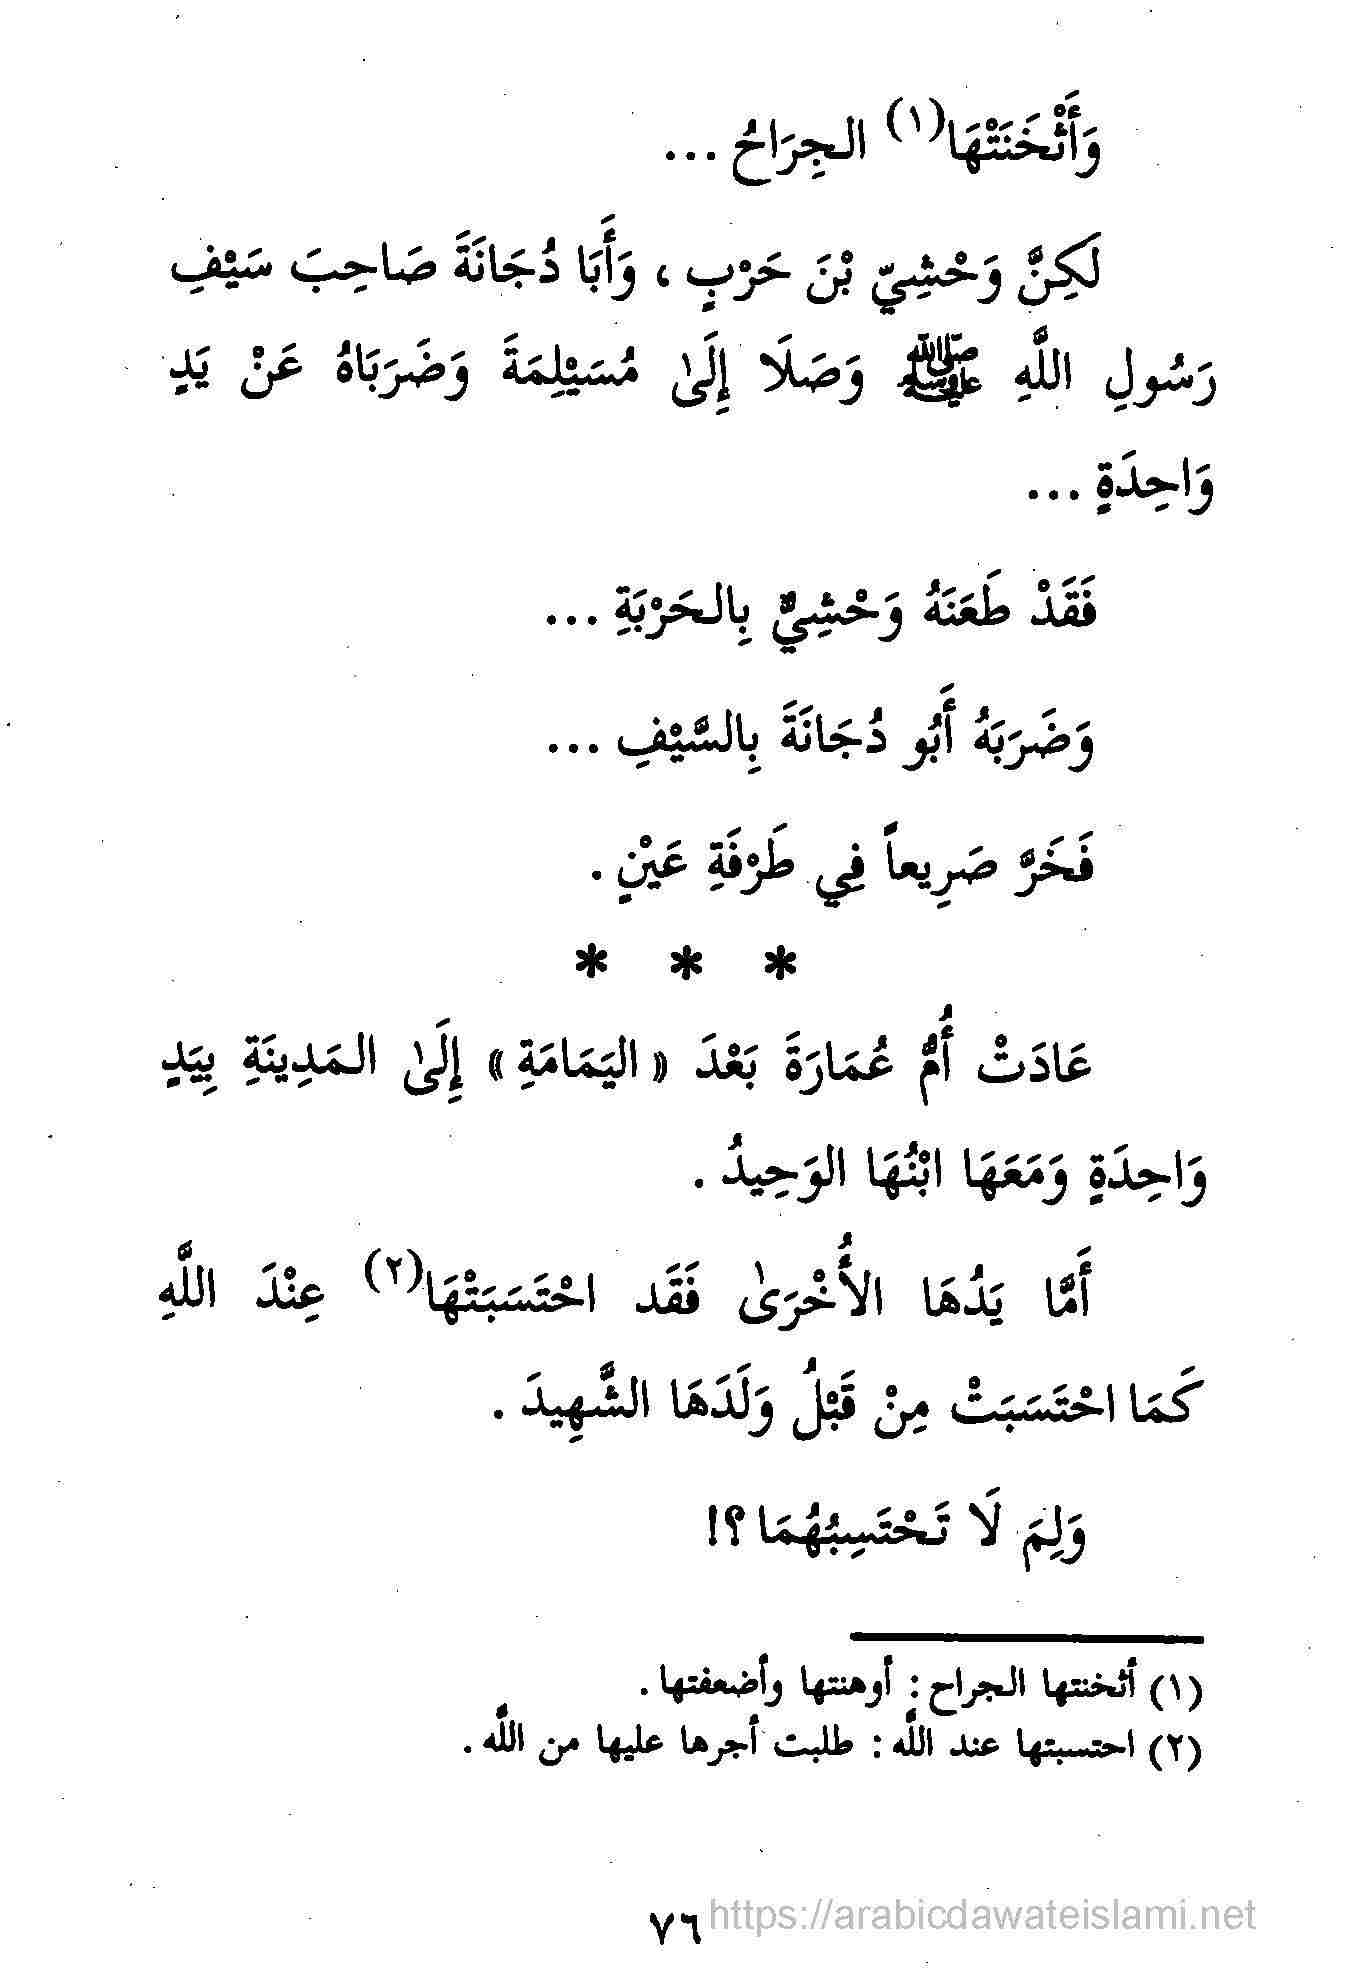 وَأَثْخَنَتْهَا(١) الجِرَاحُ ...
لَكِنَّ وَحْشِيّ بْنَ حَرْبٍ ، وَأَبَا دُجَانَةَ صَاحِبَ سَيْفِ
رَسُولِ اللَّهِ ﷺ وَصَلَا إِلَىٰ مُسَيْلِمَةَ وَضَرَبَاهُ عَنْ يَدٍ
وَاحِدَةٍ ...
فَقَدْ طَعَنَهُ وَحْشِيٌّ بِالحَرْبَةِ ...
وَضَرَبَهُ أَبُو دُجَانَةَ بِالسَّيْفِ ...
فَخَرَّ صَرِيعاً فِي طَرْفَةِ عَيْنٍ .
* * *
عَادَتْ أُمُّ عُمَارَةَ بَعْدَ « اليَمَامَةِ » إِلَىٰ المَدِينَةِ بِيَدٍ
وَاحِدَةٍ وَمَعَهَا ابْنُهَا الوَحِيدُ .
أَمَّا يَدُهَا الأُخْرَىٰ فَقَد احْتَسَبَتْهَا(٢) عِنْدَ اللَّهِ
كَمَا احْتَسَبَتْ مِنْ قَبْلُ وَلَدَهَا الشَّهِيدَ .
وَلِمَ لَا تَحْتَسِبُهُمَا ؟!
(١) أثخنتها الجراح : أوهنتها وأضعفتها .
(٢) احتسبتها عند اللَّه : طلبت أجرها عليها من اللَّه .
٧٦ https://arabicdawateislami.net